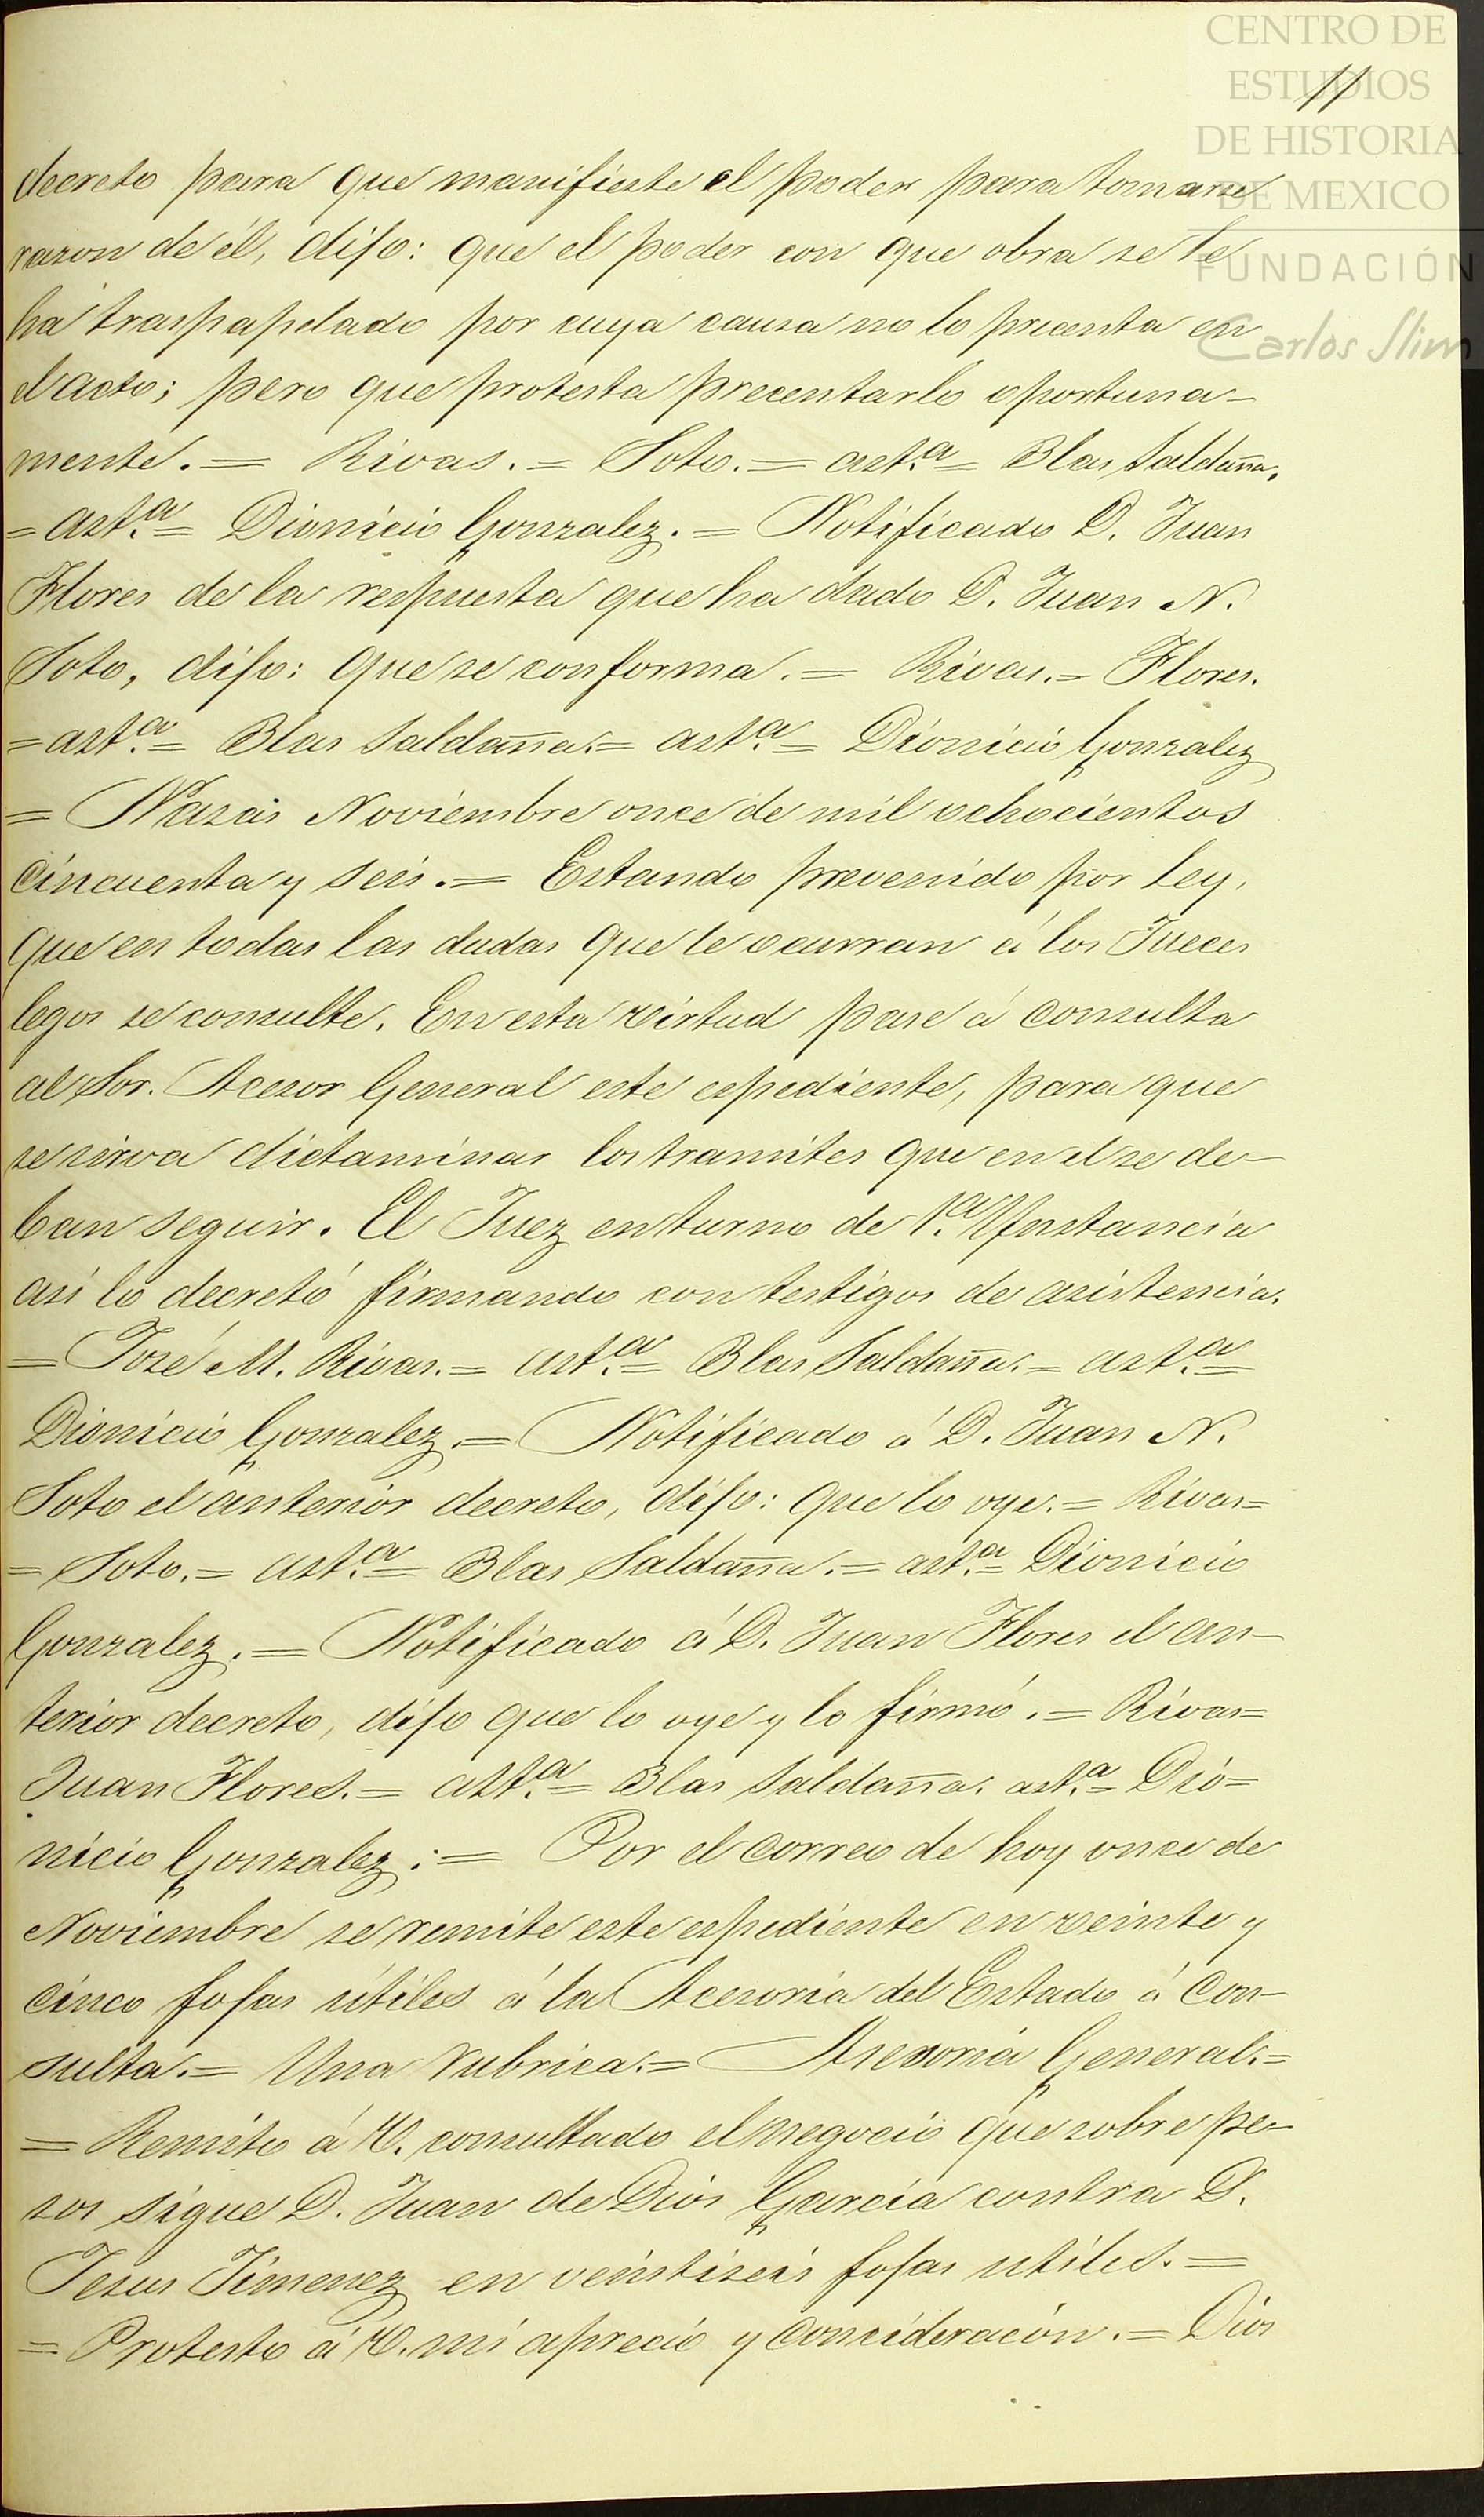 CENTRO DE
ESTUDIOS
DE HISTORIA
DE MEXICO
FUNDACIÓN
Carlos Slim
11
decreto para que manifieste el poder para tomarse
razon de él, dijo: que el poder con que obra se le
ha traspapelado por cuya causa no lo precenta en
el acto; pero que protesta precentarlo oportuna-
mente. = Rivas. = Soto. = asta. = Blas Saldaña.
= asta. = Dionicio Gonzalez. = Notificado D. Juan
Flores de la respuesta que ha dado D. Juan N.
Soto, dijo: que se conforma. = Rivas. = Flores.
= asta. = Blas Saldaña. = asta. = Dionicio Gonzalez
= Nazas Noviembre once de mil ochocientos
cincuenta y seis. = Estando prevenido por ley,
que en todas las dudas que le ocurran á los Jueces
legos se consulte. En esta virtud pase á consulta
al Sor. Acesor General este espediente, para que
se sirva dictaminar los tramites que en el se de-
ban seguir. El Juez en turno de 1a. Instancia
así lo decretó firmando con testigos de asistencia.
= José M. Rivas. = asta. = Blas Saldaña. = asta. =
Dionicio Gonzalez. = Notificado á D. Juan N.
Soto el anterior decreto, dijo: que lo oye. = Rivas =
= Soto. = asta. = Blas Saldaña. = asta. = Dionicio
Gonzalez. = Notificado á D. Juan Flores el an-
terior decreto, dijo que lo oye y lo firmó. = Rivas =
Juan Flores. = asta. = Blas Saldaña. asta. = Dio=
nicio Gonzalez. = Por el correo de hoy once de
Noviembre se remite este espediente en veinte y
cinco fojas útiles á la Acesoria del Estado á con-
sulta. = Una rubrica. = Asesoria General. =
= Remito á V. consultado el negocio que sobre pe-
sos sigue D. Juan de Dios Garcia contra D.
Jesus Jimenez en veintiseis fojas utiles. =
= Protesto á V. mi aprecio y concideracion. = Dios